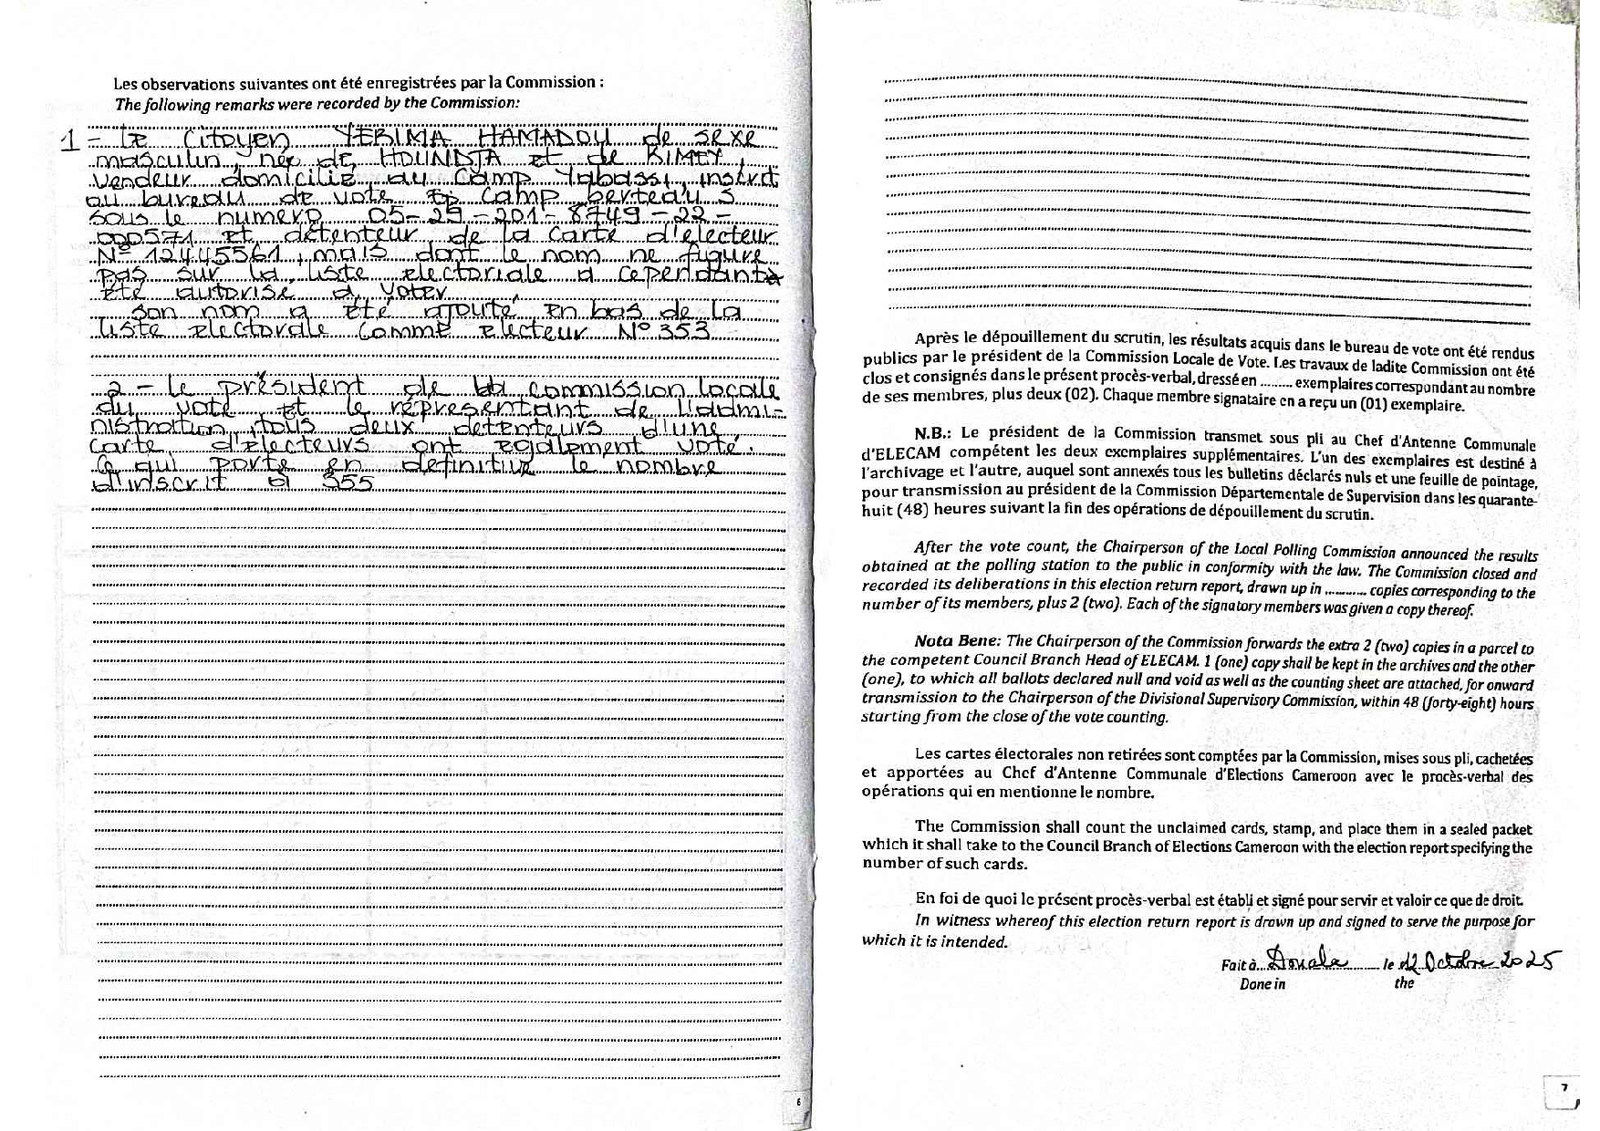 Les observations suivantes ont été enregistrées par la Commission :
The following remarks were recorded by the Commission:
1 - Le Citoyen YERIMA HAMADOU de sexe
masculin, née de HOUNDJA et de BIMEY,
vendeur domicilié au Camp Yabassi, inscrit
au bureau de vote Camp berteau 3
sous le numero 05-29-201-8749-22-
000571 et détenteur de la carte d'électeur
N° 12445561, mais dont le nom ne figure
pas sur la liste electoriale a cependant
été autorisé à voter
son nom a été ajouté en bas de la
liste electorale comme electeur N° 353
2 - Le président de la commission locale
du vote et le representant de l'admi-
nistration tous deux detenteurs d'une
carte d'electeurs ont egalement voté.
Ce qui porte en definitive le nombre
d'inscrit à 355
6
Après le dépouillement du scrutin, les résultats acquis dans le bureau de vote ont été rendus
publics par le président de la Commission Locale de Vote. Les travaux de ladite Commission ont été
clos et consignés dans le présent procès-verbal, dressé en ......... exemplaires correspondant au nombre
de ses membres, plus deux (02). Chaque membre signataire en a reçu un (01) exemplaire.
N.B.: Le président de la Commission transmet sous pli au Chef d'Antenne Communale
d'ELECAM compétent les deux exemplaires supplémentaires. L'un des exemplaires est destiné à
l'archivage et l'autre, auquel sont annexés tous les bulletins déclarés nuls et une feuille de pointage,
pour transmission au président de la Commission Départementale de Supervision dans les quarante-
huit (48) heures suivant la fin des opérations de dépouillement du scrutin.
After the vote count, the Chairperson of the Local Polling Commission announced the results
obtained at the polling station to the public in conformity with the law. The Commission closed and
recorded its deliberations in this election return report, drawn up in .......... copies corresponding to the
number of its members, plus 2 (two). Each of the signatory members was given a copy thereof.
Nota Bene: The Chairperson of the Commission forwards the extra 2 (two) copies in a parcel to
the competent Council Branch Head of ELECAM. 1 (one) copy shall be kept in the archives and the other
(one), to which all ballots declared null and void as well as the counting sheet are attached, for onward
transmission to the Chairperson of the Divisional Supervisory Commission, within 48 (forty-eight) hours
starting from the close of the vote counting.
Les cartes électorales non retirées sont comptées par la Commission, mises sous pli, cachetées
et apportées au Chef d'Antenne Communale d'Elections Cameroon avec le procès-verbal des
opérations qui en mentionne le nombre.
The Commission shall count the unclaimed cards, stamp, and place them in a sealed packet
which it shall take to the Council Branch of Elections Cameroon with the election report specifying the
number of such cards.
En foi de quoi le présent procès-verbal est établi et signé pour servir et valoir ce que de droit.
In witness whereof this election return report is drawn up and signed to serve the purpose for
which it is intended.
Fait à Douala le 12 Octobre 2025
Done in the
7